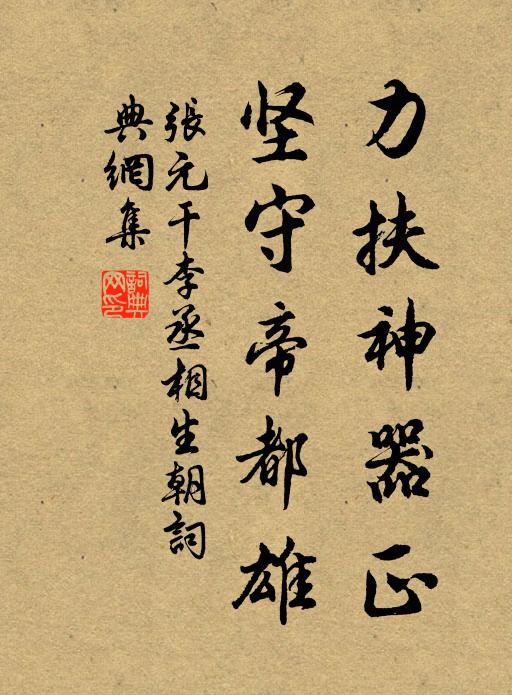 力扶神器正
坚守帝都雄
張元干李丞相生朝詞
典網集
詞典网印